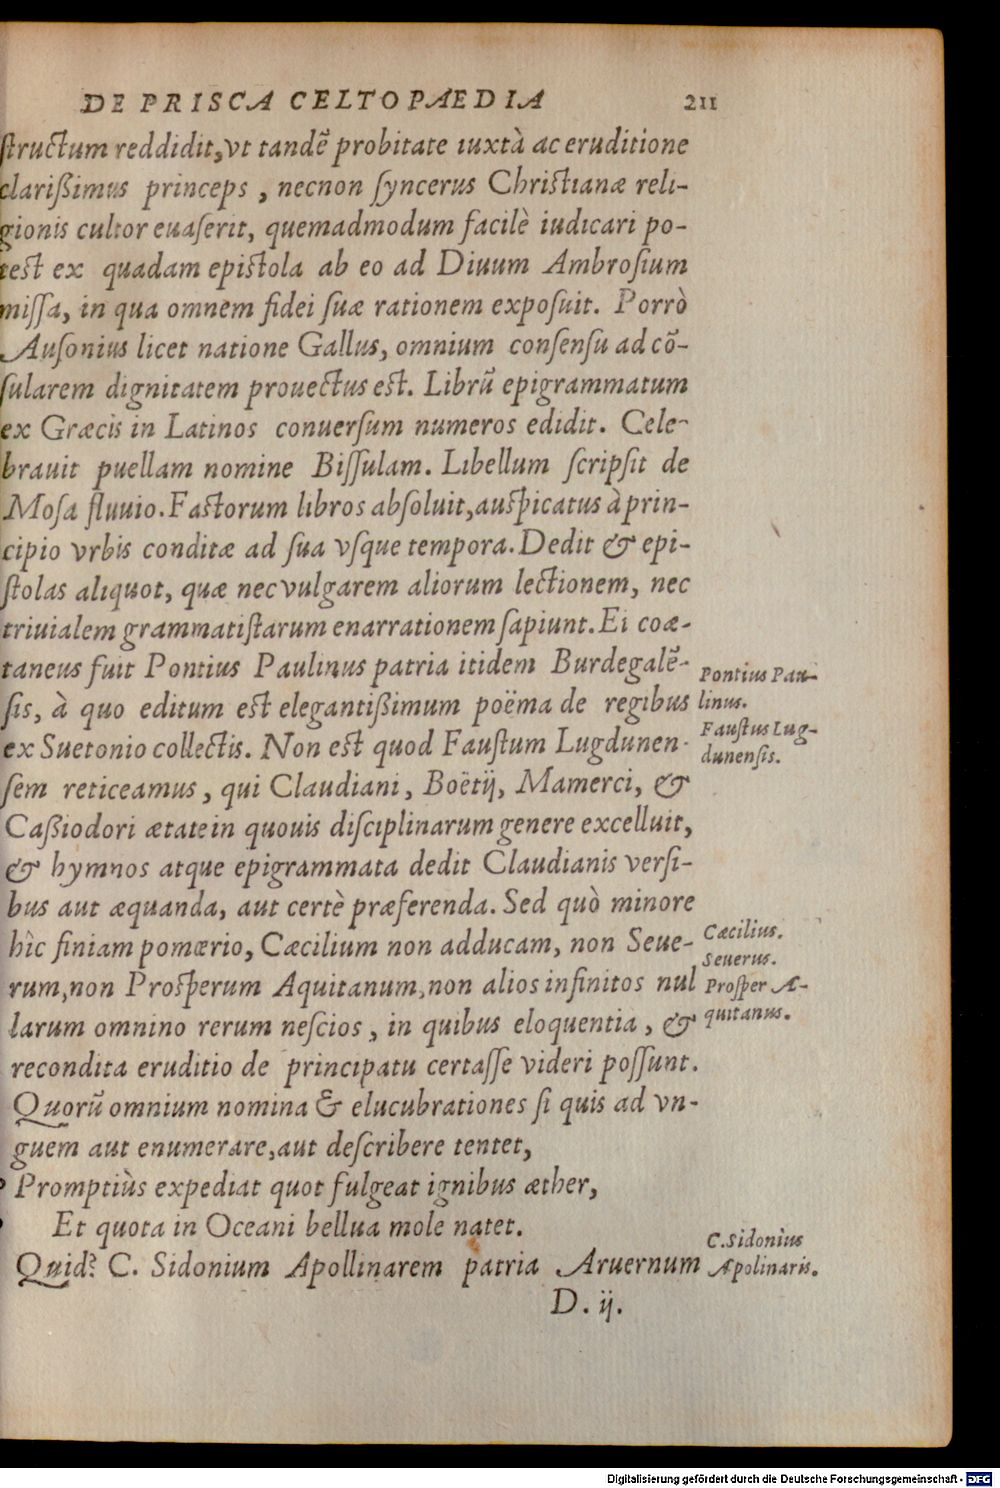 DE PRISCA CELTOPAEDIA 211
structum reddidit, vt tandē probitate iuxtà ac eruditione
clarißimus princeps, necnon syncerus Christianæ reli-
gionis cultor euaserit, quemadmodum facilè iudicari po-
test ex quadam epistola ab eo ad Diuum Ambrosium
missa, in qua omnem fidei suæ rationem exposuit. Porrò
Ausonius licet natione Gallus, omnium consensu ad cō-
sularem dignitatem prouectus est. Librū epigrammatum
ex Græcis in Latinos conuersum numeros edidit. Cele-
brauit puellam nomine Bissulam. Libellum scripsit de
Mosa fluuio. Fastorum libros absoluit, auspicatus à prin-
cipio vrbis conditæ ad sua vsque tempora. Dedit & epi-
stolas aliquot, quæ nec vulgarem aliorum lectionem, nec
triuialem grammatistarum enarrationem sapiunt. Ei coæ-
taneus fuit Pontius Paulinus patria itidem Burdegalē-
sis, à quo editum est elegantißimum poëma de regibus
ex Suetonio collectis. Non est quod Faustum Lugdunen-
sem reticeamus, qui Claudiani, Boëtij, Mamerci, &
Caßiodori ætate in quouis disciplinarum genere excelluit,
& hymnos atque epigrammata dedit Claudianis versi-
bus aut æquanda, aut certè præferenda. Sed quò minore
hîc finiam pomœrio, Cæcilium non adducam, non Seue-
rum, non Prosperum Aquitanum, non alios infinitos nul
larum omnino rerum nescios, in quibus eloquentia, &
recondita eruditio de principatu certasse videri possunt.
Quorū omnium nomina & elucubrationes si quis ad vn-
guem aut enumerare, aut describere tentet,
Promptiùs expediat quot fulgeat ignibus æther,
Et quota in Oceani bellua mole natet.
Quid? C. Sidonium Apollinarem patria Aruernum
D. ij.
Pontius Pau-
linus.
Faustus Lug-
dunensis.
Cæcilius.
Seuerus.
Prosper A-
quitanus.
C. Sidonius
Apolinaris.
Digitalisierung gefördert durch die Deutsche Forschungsgemeinschaft - DFG